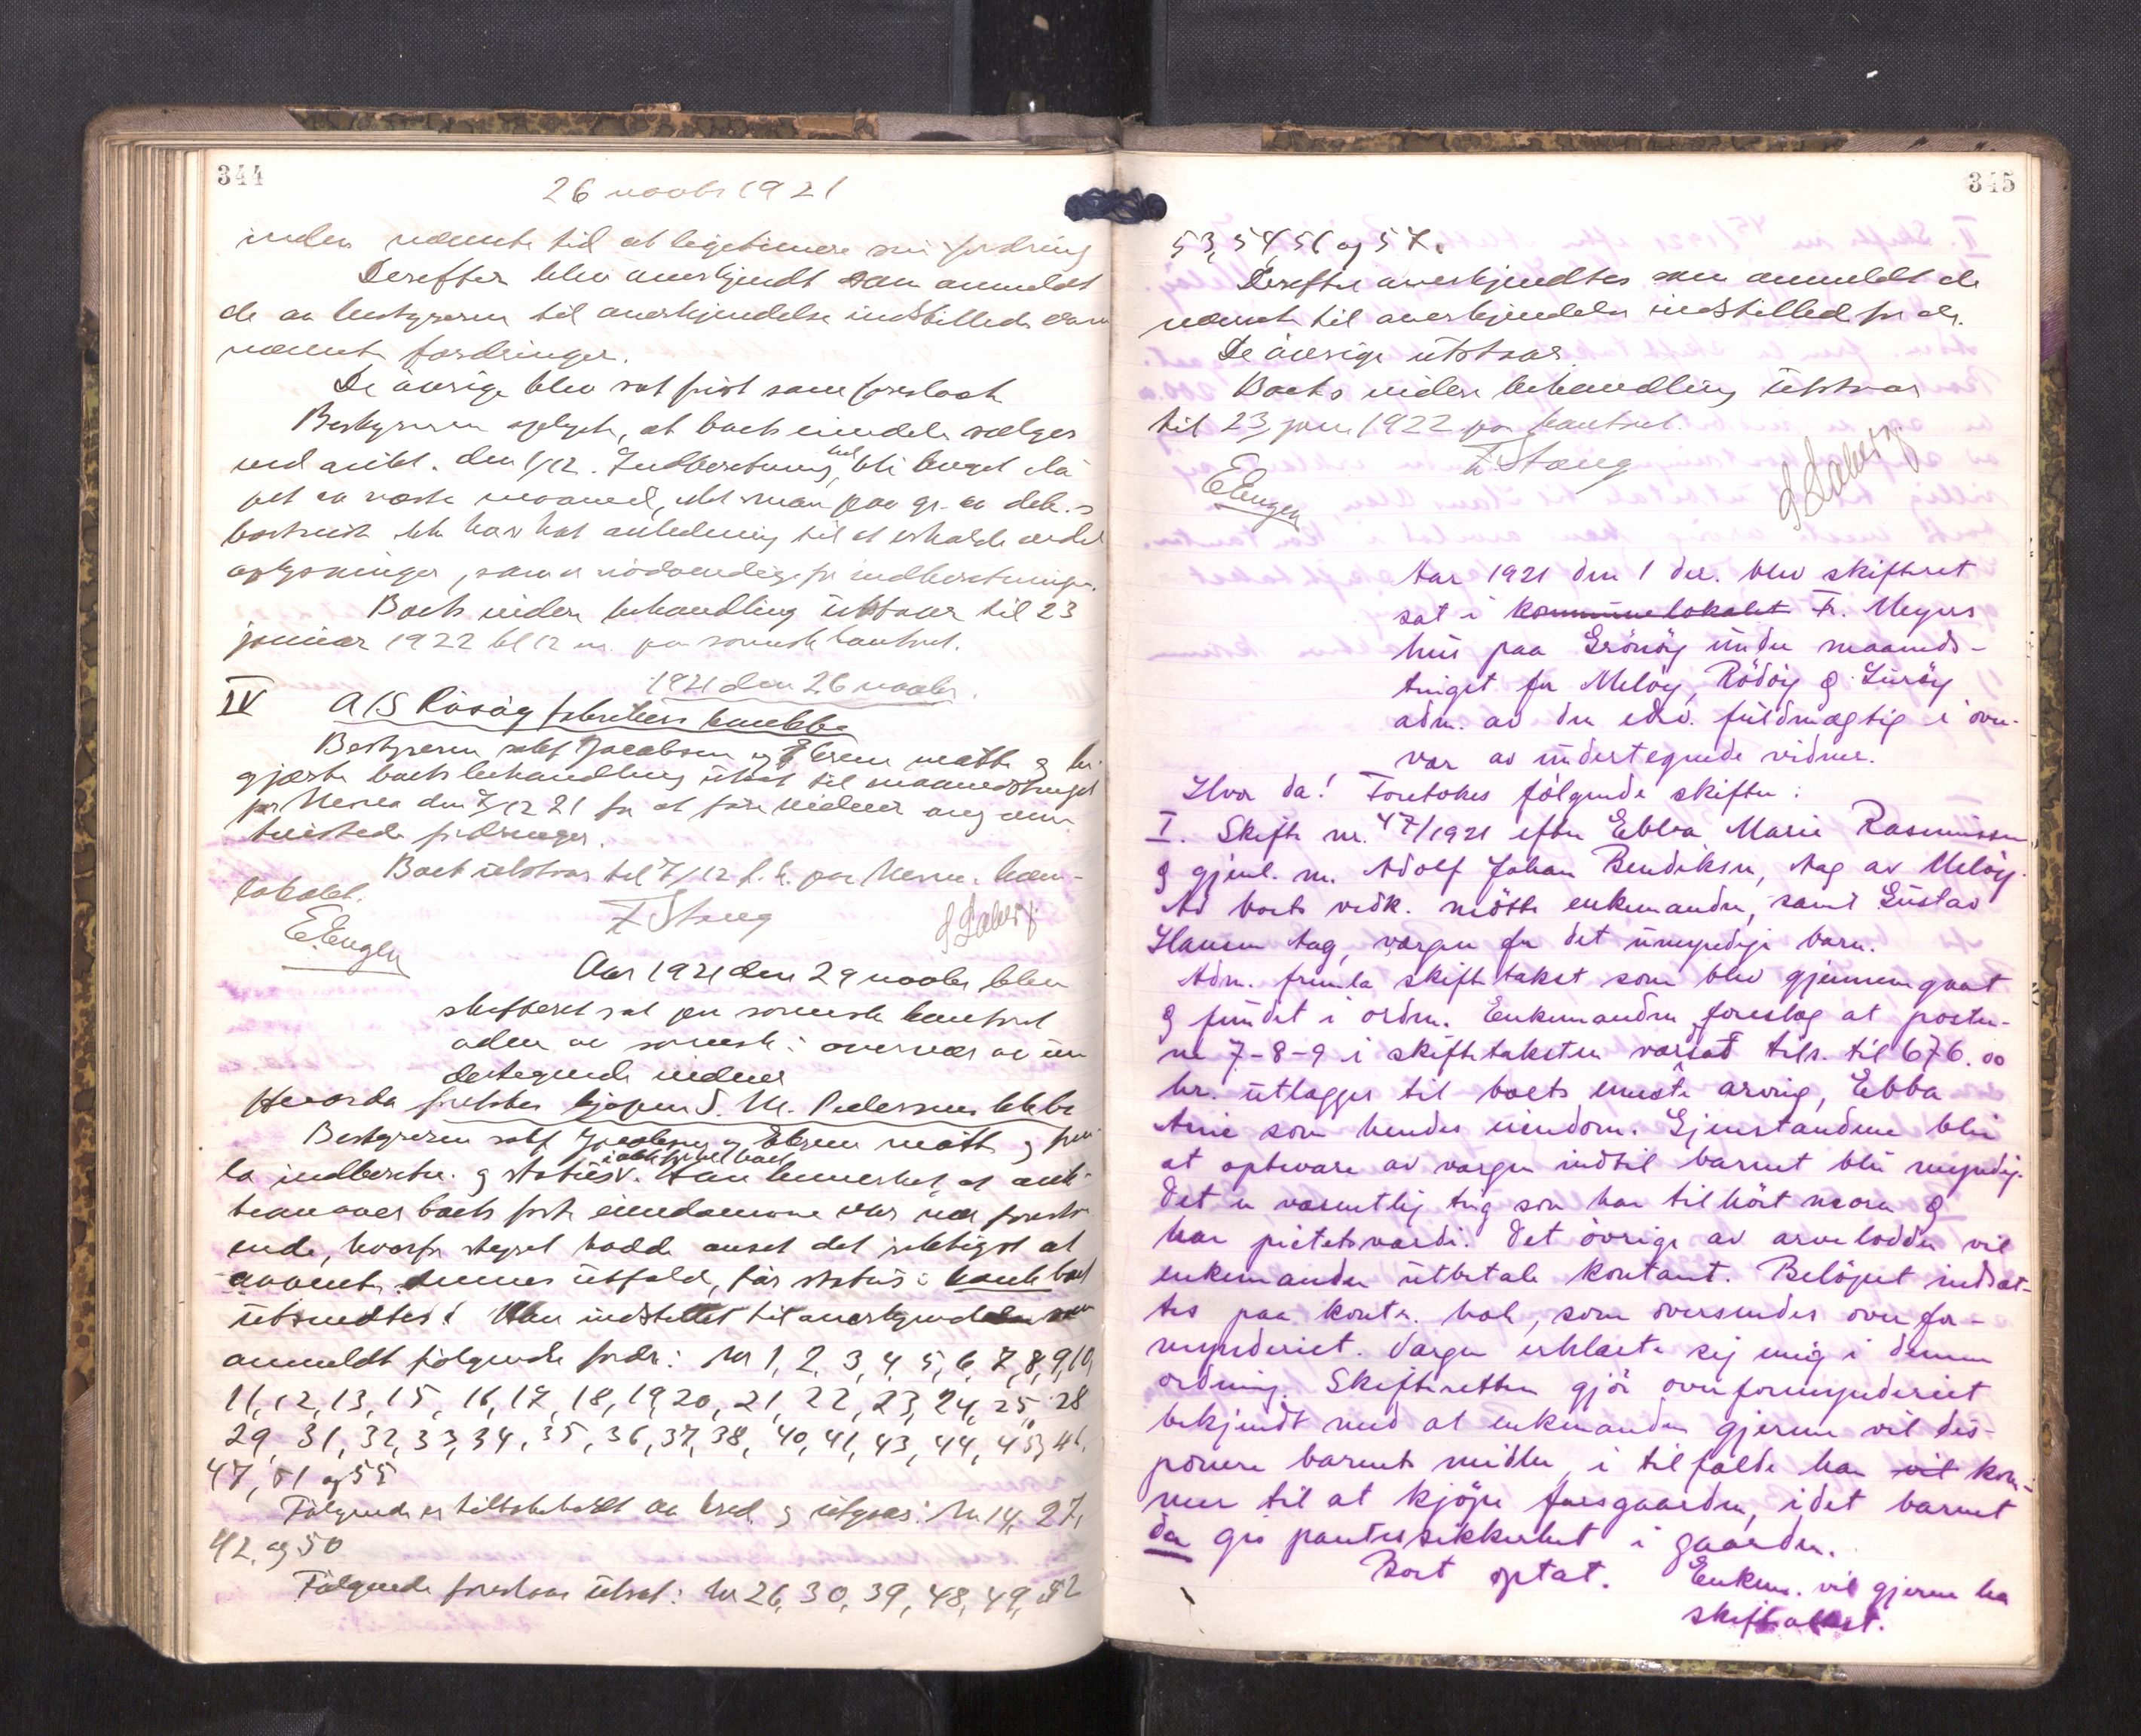 344
26 novbr 1921
inden nævnte tid at legitimere sin fordring
Derefter blev anerkjendt som anmeldt
de av bestyreren til anerkjendelse indstillede som
nævnte fordringer.
De øvrige blev sat frist som foreslaat
Bestyreren oplyste, at boets eiendele sælges
ved auktion den 1/12. Indberetning vil bli
næste maaned, idet man paa gr. av
bortreist ikke har hat anledning til at erholde endel
oplysninger, som er nødvendige for indberetningen.
Boets videre behandling utstaar til 23
januar 1922 kl 12 m. paa sorensk. kontoret.
1921 den 26 novbr.
IV A/S Rösöy fabrikers konkbo
Bestyreren sakf Jacobsen og Ebrem møtte og be-
gjærte boets behandling utsat til maanedstinget
paa Nesna den 7/12 21 for at føre vidner ang en
tvistede fordringer.
Boet utstaar til 7/12 f. k. paa Nesna. Kom-
lokalet.
E Engen F Stang
Aar 1921 den 29 novbr blev
skifteret sat paa sorensk kontoret
adm. av sorensk. i overvær av un
dertegnede vidner
Hvorda foretokes kjøpm S. M. Pedersens kkbo
Bestyreren sakf Jacobsen og Ebrem møtte og frem
la indberetn. og status i v. Han bemerket, at auk-
tion over boets faste eiendomme var nær forestaa
ende, hvorfor styret hadde anset det rigtigst at
avvente dennes utfald, før status i konkboet
utsendtes. Han indstillet til anerkjendelse som
anmeldt følgende fordr: Nr 1, 2, 3, 4, 5, 6, 7, 8, 9, 10,
11, 12, 13, 15, 16, 17, 18, 19, 20, 21, 22, 23, 24, 25, 28
29, 31, 32, 33, 34, 35, 36, 37, 38, 40, 41, 43, 44, 45, 46,
47, 51 og 55
Følgende er tilbakekaldt av kred. og utgaar: Nr 14, 27,
42, og 50
Følgende foreslaaes utsat: Nr 26, 30, 39, 48, 49, 52
345
53, 54, 56 og 57.
Derefter anerkjendtes som anmeldt de
nævnte til anerkjendelse indstillede fordr.
De øvrige utstaar
Boets videre behandling utstaar
til 23 janu 1922 paa kontoret.
E Engen F Stang
Aar 1921 den 1 der. blev skifteret
sat i kommunelokalet Fr. Meyers
hus paa Grönöy under maaneds-
tinget for Meløy, Rødøy & Lurøy
adm. av den edsv. fuldmægtig i over-
vær av undertegnede vidner.
Hvor da! Foretokes følgende skifter:
I. Skifte nr. 47/1921 efter Ebba Marie Rasmussen
& gjenl. m. Adolf Johan Bendiksen, Aag av Meløy.
Ad boets vedk. møtte enkemanden, samt Gustav
Hansen Aag, værgen for det umyndige barn.
Adm. fremla skiftetakst som blev gjennemgaat
& fundet i orden. Enkemanden foreslog at poster-
ne 7-8-9 i skiftetaksten værsat tils. til 676.00
kr. utlægges til boets eneste arving, Ebba
Arnie som hendes eiendom. Gjenstandene blir
at opbevare av værgen indtil barnet blir myndig.
Det er væsentlig tøg som har tilhørt moren &
har pietetsværdi. Det øvrige av arvelodden vil
enkemanden utbetale kontant. Beløpet indsæt-
tes paa kontr. bok, som oversendes overfor-
mynderiet. Værgen erklærte sig enig i denne
ordning. Skifteretten gjør overformynderiet
bekjendt med at enkemanden gjerne vil dis-
ponere barnets midler, i tilfælde han vil kom-
mer til at kjøpe farsgaarden, idet barnet
da gis pantesikkerhet i gaarden.
Boet optat. Enkem. vil gjerne ha
skifteattest.